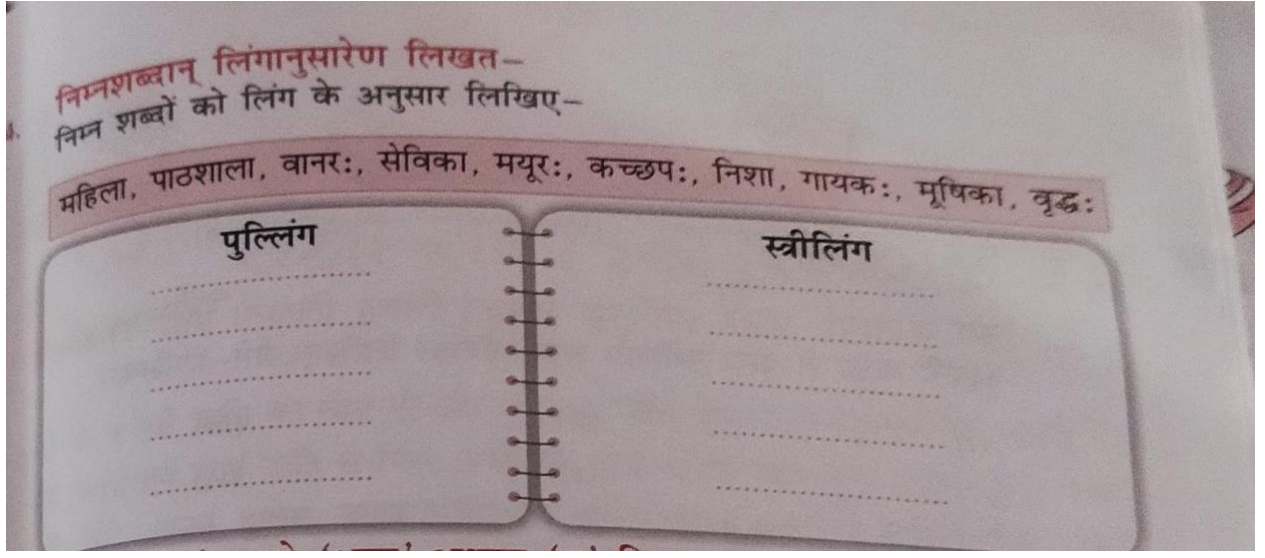 निम्नशब्दान् लिंगानुसारेण लिखत–
निम्न शब्दों को लिंग के अनुसार लिखिए–
महिला, पाठशाला, वानरः, सेविका, मयूरः, कच्छपः, निशा, गायकः, मूषिका, वृद्धः
पुल्लिंग
स्त्रीलिंग